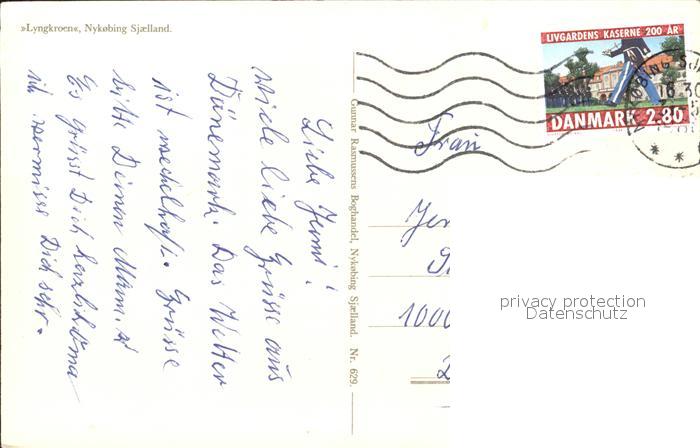 »Lyngkroen«, Nykøbing Sjælland.
Liebe Jenni!
viele liebe Grüsse aus
Dänemark. Das Wetter
ist wechelhaft. Grüsse
bitte Deinen Mann.
Es grüsst Dich herzlich Oma
ich vermisse Dich sehr.
Gunnar Rasmussens Boghandel, Nykøbing Sjælland. Nr. 629.
LIVGARDENS KASERNE 200 ÅR
DANMARK 2.80
Frau
1000
privacy protection
Datenschutz